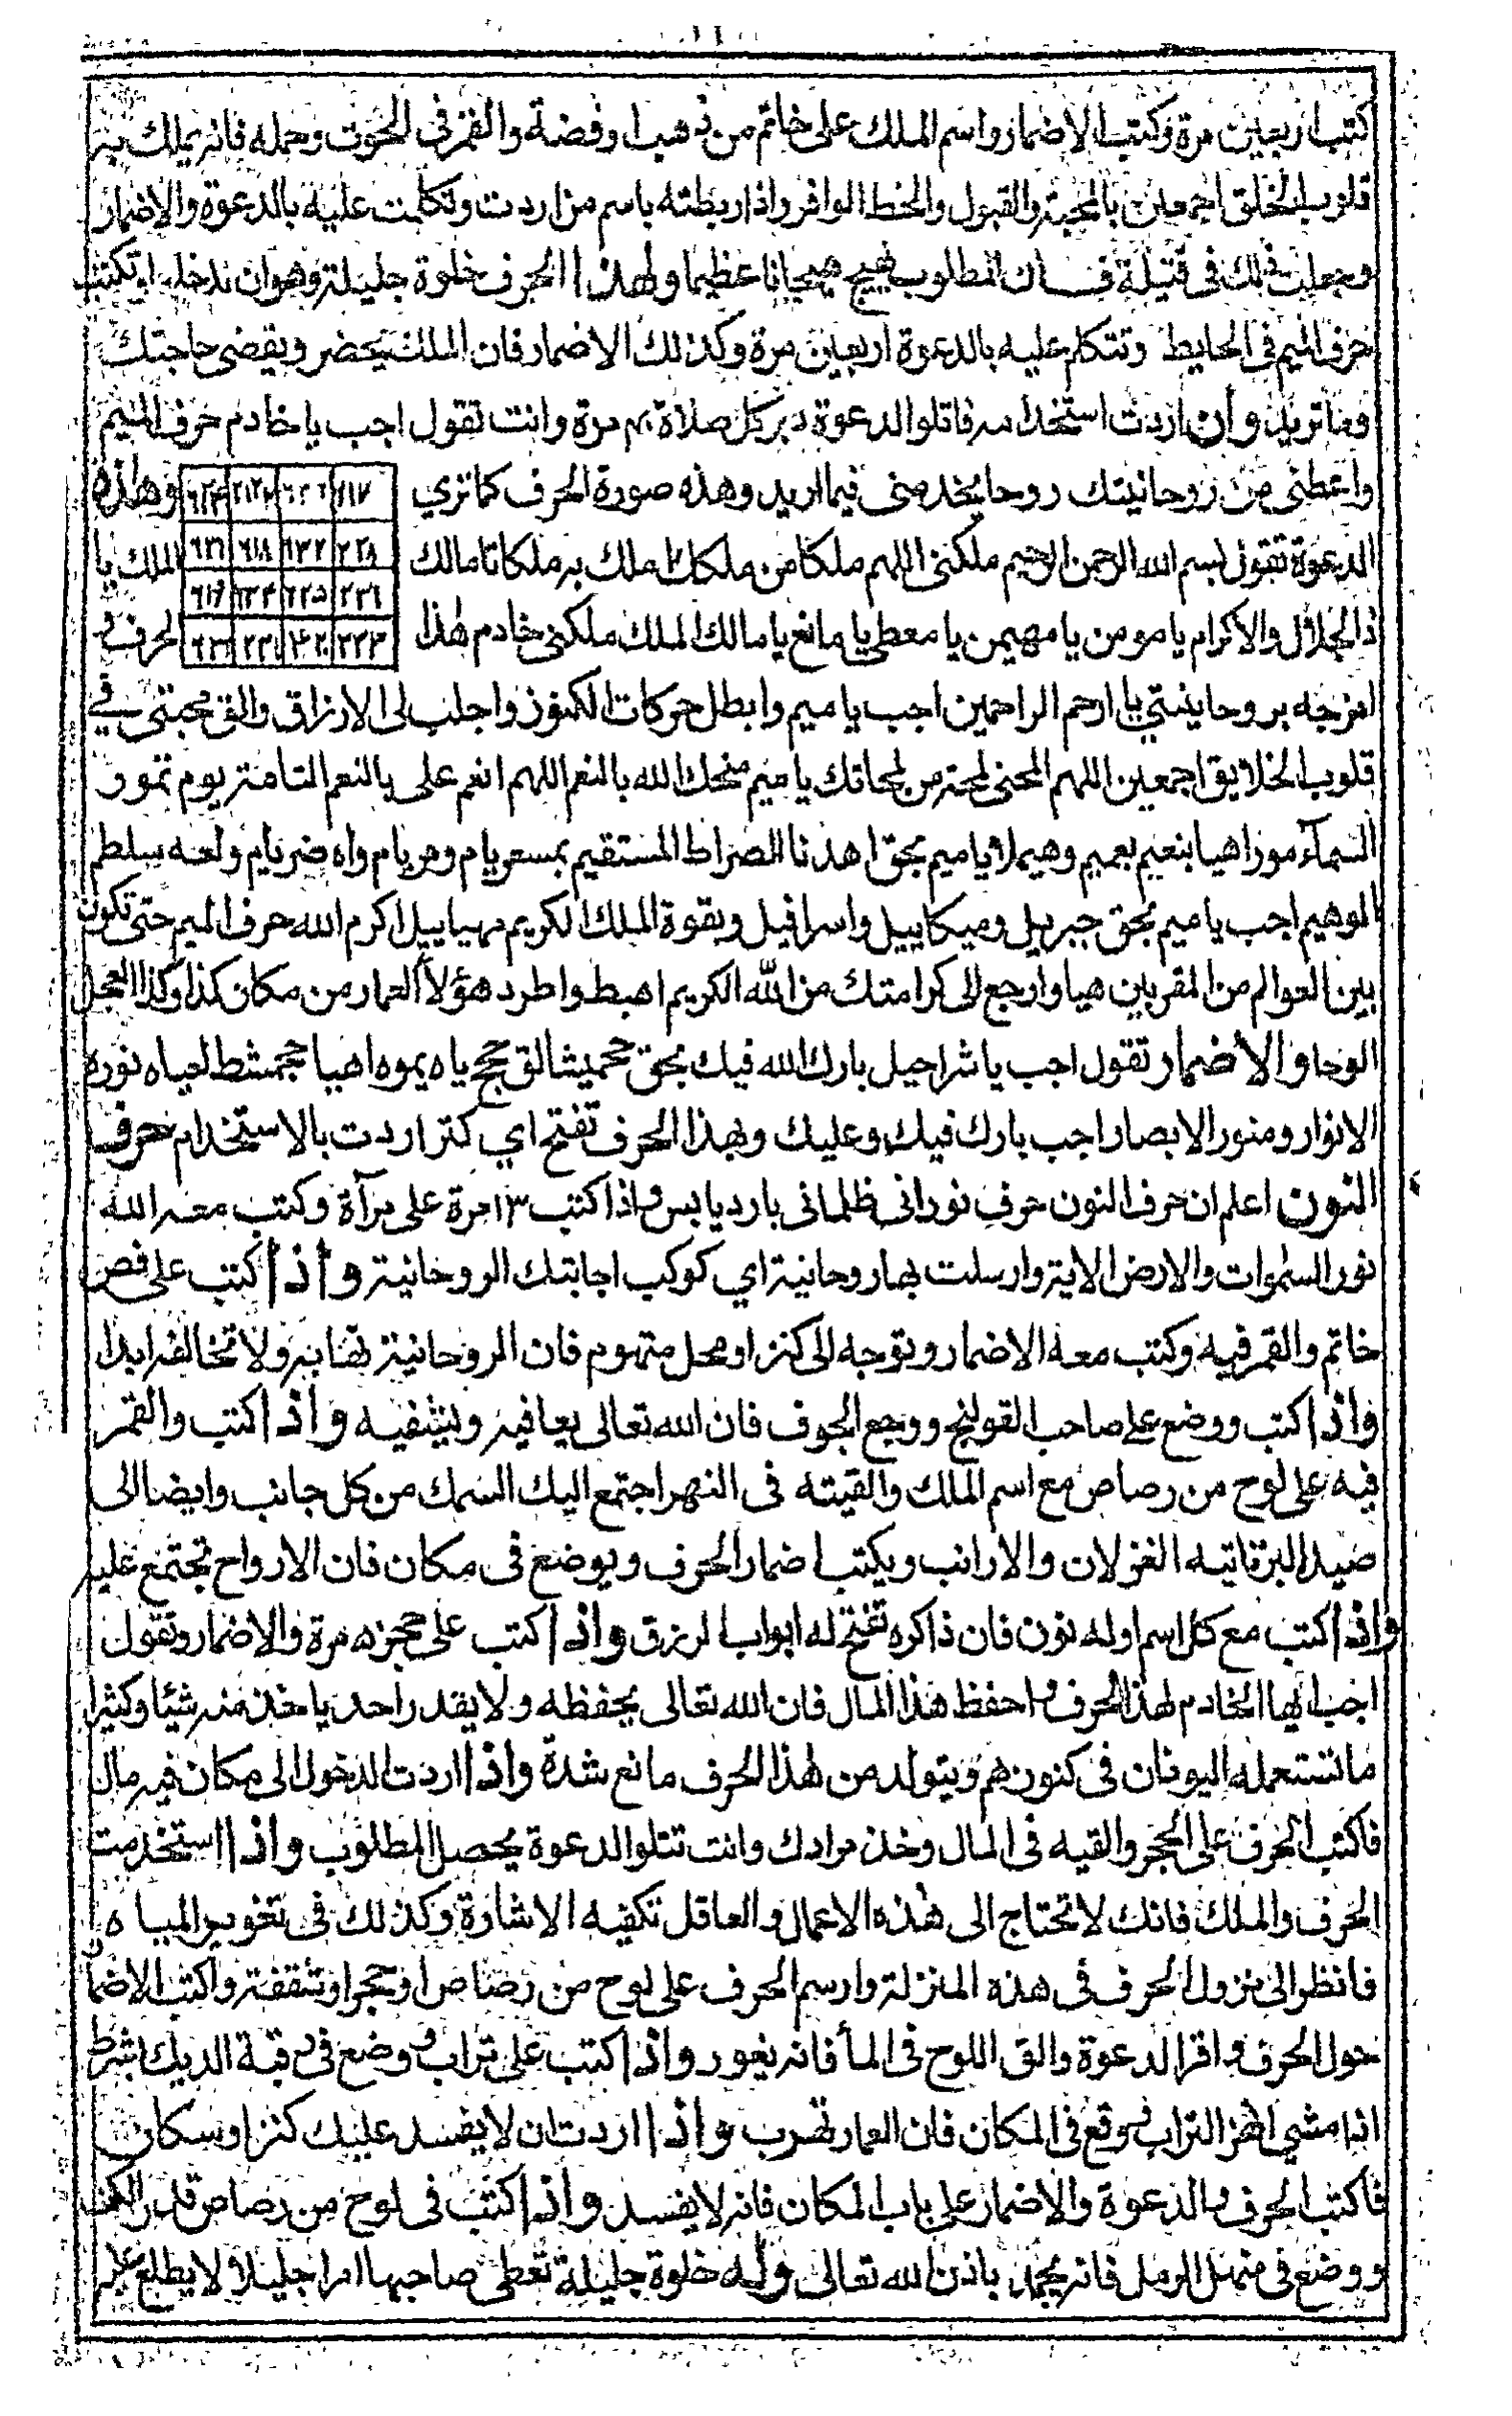 كتب اربعين مرة وكتب الاضمار واسم الملك على خاتم من ذهب او فضة والقمر فى الحوت وحمله فانه يملك به
قلوب الخلق اجمعين بالمحبة والقبول والخط الوافر واذا ربطته باسم من اردت وتكلمت عليه بالدعوة والاضمار
وجعلت ذلك فى فتيلة فـــان المطلوب يهيج هيجانا عظيما ولهذا الحرف خلوة جليلة وهو ان تدخله اوتكتب
حرف الميم فى الحايط وتتكلم عليه بالدعوة اربعين مرة وكذلك الاضمار فان الملك يحضر ويقضى حاجتك
وما تريد وان اردت استخدامه فاتلوا الدعوة دبر كل صلاة ٤٠ مرة وانت تقول اجب يا خادم حرف الميم
واعطنى من روحانيتك روحا يخدمنى فيما اريد وهذه صورة الحرف كما تري وهذه
الدعوة تقول بسم الله الرحمن الرحيم ملكنى اللهم ملكا من ملكك املك به ملكا تاما مالك الملك يا
ذا الجلال والاكرام يا مومن يا مهيمن يا معطى يا مانع يا مالك الملك ملكنى خادم هذا الحرف و
امزجه بروحانيتي يا ارحم الراحمين اجب يا ميم وابطل حركات الكنوز واجلب لى الارزاق والق محبتى في
قلوب الخلايق اجمعين اللهم المحنى لمحة من لمحاتك يا ميم منحك الله بالنعم اللهم انعم على بالنعم التامة يوم تمور
السمآء مورا هيا بنعيم بعميم وهيملا يا ميم بحق اهدنا الصراط المستقيم بمسعريام ومريام واه ضرنام ولعه سلطم
الوهيم اجب يا ميم بحق جبريل وميكاييل واسرافيل وبقوة الملك الكريم مهياييل اكرم الله حرف الميم حتى تكون
بين العوالم من المقربين هيا وارجع الى كرامتك من الله الكريم اهبط واطرد هؤلا العمار من مكان كذا وكذا العجل
الوحا والاضمار تقول اجب يا شراحيل بارك الله فيك بحق حميشالق جج ياه يموه اهيا ججمشط لحياه نوره
الانوار ومنور الابصار اجب بارك فيك وعليك وبهذا الحرف تفتح اي كنز اردت بالاستخدام حرف
النون اعلم ان حرف النون حرف نورانى ظلمانى بارد يابس واذا كتب ١٣ مرة على مرآة وكتب معه الله
نور السموات والارض الاية وارسلت بها روحانية اي كوكب اجابتك الروحانية واذا كتب على فص
خاتم والقمر فيه وكتب معه الاضمار وتوجه الى كنز او محل متهوم فان الروحانية تهابه ولا تخالفه ابدا
واذا كتب ووضع على صاحب القولنج ووجع الجوف فان الله تعالى يعافيه ويشفيه واذا كتب والقمر
فيه على لوح من رصاص مع اسم الملك والقيته فى النهر اجتمع اليك السمك من كل جانب وايضا الى
صيد البر تاتيه الغزلان والارانب ويكتب اضمار الحرف ويوضع فى مكان فان الارواح تجتمع عليه
واذا كتب مع كل اسم اوله نون فان ذاكره تفتح له ابواب الرزق واذا كتب على حجر ٥٠ مرة والاضمار وتقول
اجب ايها الخادم لهذا الحرف واحفظ هذا المال فان الله تعالى يحفظه ولا يقدر احد ياخذ منه شيئا وكثيرا
ما تستعمله اليونان فى كنوزهم ويتولد من هذا الحرف مانع شدة واذا اردت الدخول الى مكان فيه مال
فاكتب الحرف على الحجر والقيه فى المال وخذ مرادك وانت تتلوا الدعوة يحصل المطلوب واذا استخدمت
الحرف والملك فانك لا تحتاج الى هذه الاعمال والعاقل تكفيه الاشارة وكذلك فى تغوير المياه
فانظر الى نزول الحرف فى هذه المنزلة وارسم الحرف على لوح من رصاص او حجر او شقفة واكتب الاضمار
حول الحرف واقرا الدعوة والق اللوح فى المأ فانه يغور واذا كتب على تراب ووضع فى رقبة الديك بشرط
اذا مشى اهز التراب وقع فى المكان فان العمار تهرب واذا اردت ان لا يفسد عليك كنز او سكان
فاكتب الحرف والدعوة والاضمار على باب المكان فانه لا يفسد واذا كتب فى لوح من رصاص قدر الكف
ووضع فى منهل الرمل فانه يجمد باذن الله تعالى وله خلوة جليلة تعطى صاحبها امرا جليلا لا يطلع عليه